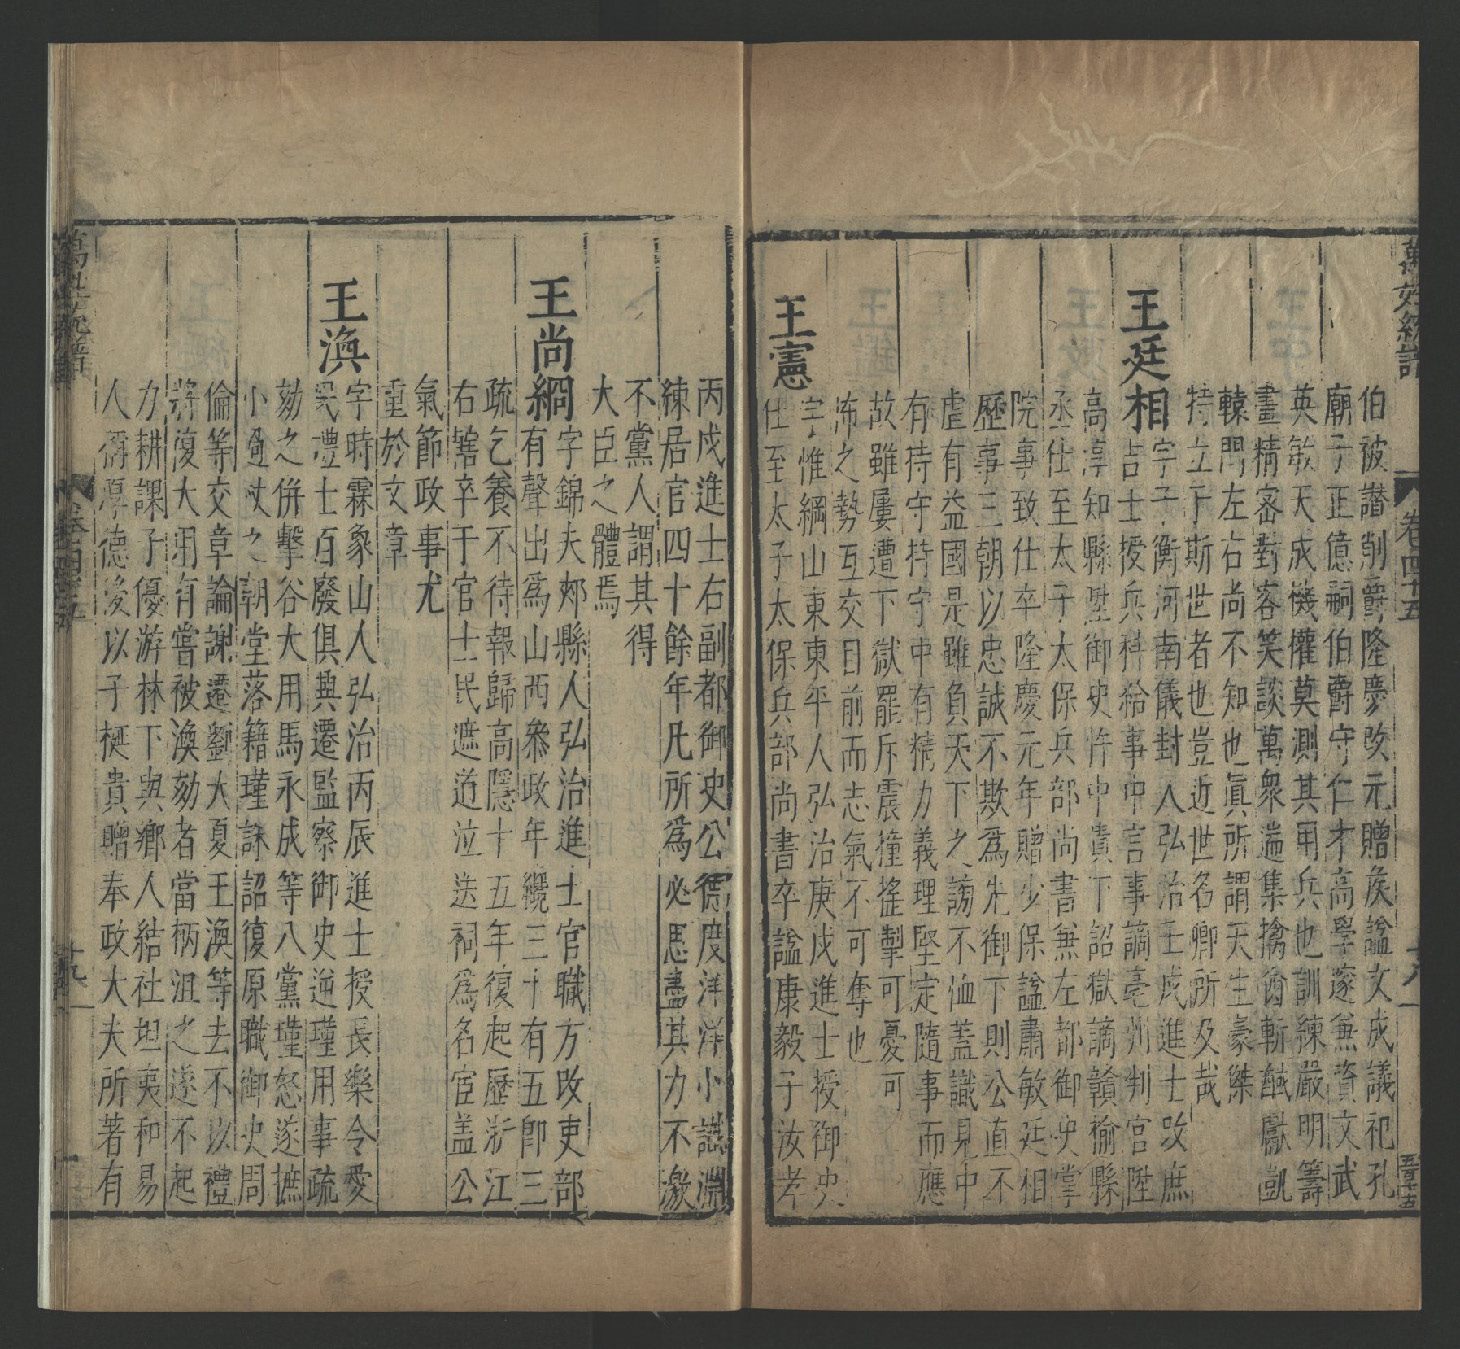 萬姓統譜 卷四十五 十八
伯被譖削爵隆慶改元贈侯諡文成議祀孔
廟子正億祠伯爵守仁才高學邃無資文武
英敏天成機權莫測其用兵也訓練嚴明籌
畫精密對客笑談萬衆遄集擒酋斬馘獻凱
轅門左右尚不知也眞所謂天生豪傑
特立于斯世者也豈近世名卿所及哉
王廷相 字子衡河南儀封人弘治壬戌進士改庶
吉士授兵科給事中言事謫亳州判官陞
高淳知縣陞御史忤中貴下詔獄謫贛榆縣
丞仕至太子太保兵部尚書無左都御史掌
院事致仕卒隆慶元年贈少保諡肅敏廷相
歷事三朝以忠誠不欺爲先御下則公直不
虐有益國是雖負天下之謗不恤蓋識見中
有持守持守中有精力義理堅定隨事而應
故雖屢遭下獄罷斥震撞搖掣可憂可
怖之勢互交目前而志氣不可奪也
王憲 字惟綱山東東平人弘治庚戌進士授御史
仕至太子太保兵部尚書卒諡康毅子汝孝
丙戌進士右副都御史公德度洋洋小識淵
練居官四十餘年凡所爲必思盡其力不激
不黨人謂其得
大臣之體焉
王尚絅 字錦夫郟縣人弘治進士官職方改吏部
有聲出爲山西叅政年纔三十有五卽三
疏乞養不待報歸高隱十五年復起歷浙江
右轄卒于官士民遮道泣送祠爲名宦蓋公
氣節政事尤
重於文章
王渙 字時霖象山人弘治丙辰進士授長樂令愛
民禮士百廢俱興遷監察御史逆瑾用事疏
劾之併擊谷大用馬永成等八黨瑾怒遂摭
小過杖之朝堂落籍瑾誅詔復原職御史周
倫等交章論謝遷劉大夏王渙等去不以禮
將復大用有嘗被渙劾者當柄沮之遂不起
力耕課子優游林下與鄉人結社坦夷和易
人稱厚德後以子梃貴贈奉政大夫所著有
萬姓統譜 卷四十五 十九